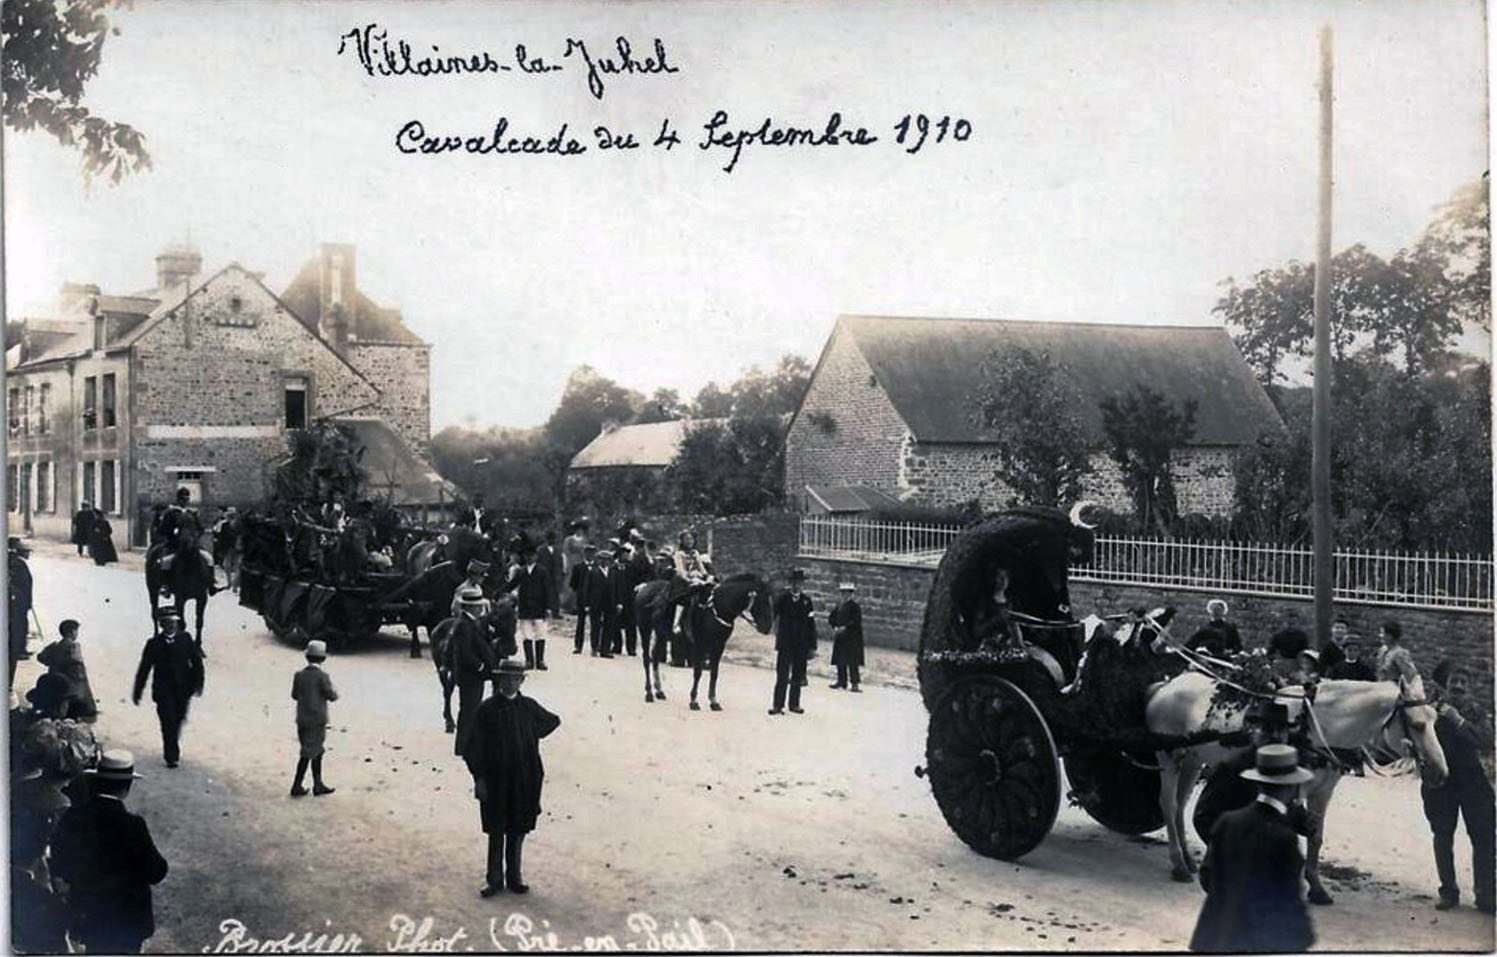 Villaines-la-Juhel
Cavalcade du 4 Septembre 1910
Brossier Phot. (Pré-en-Pail)